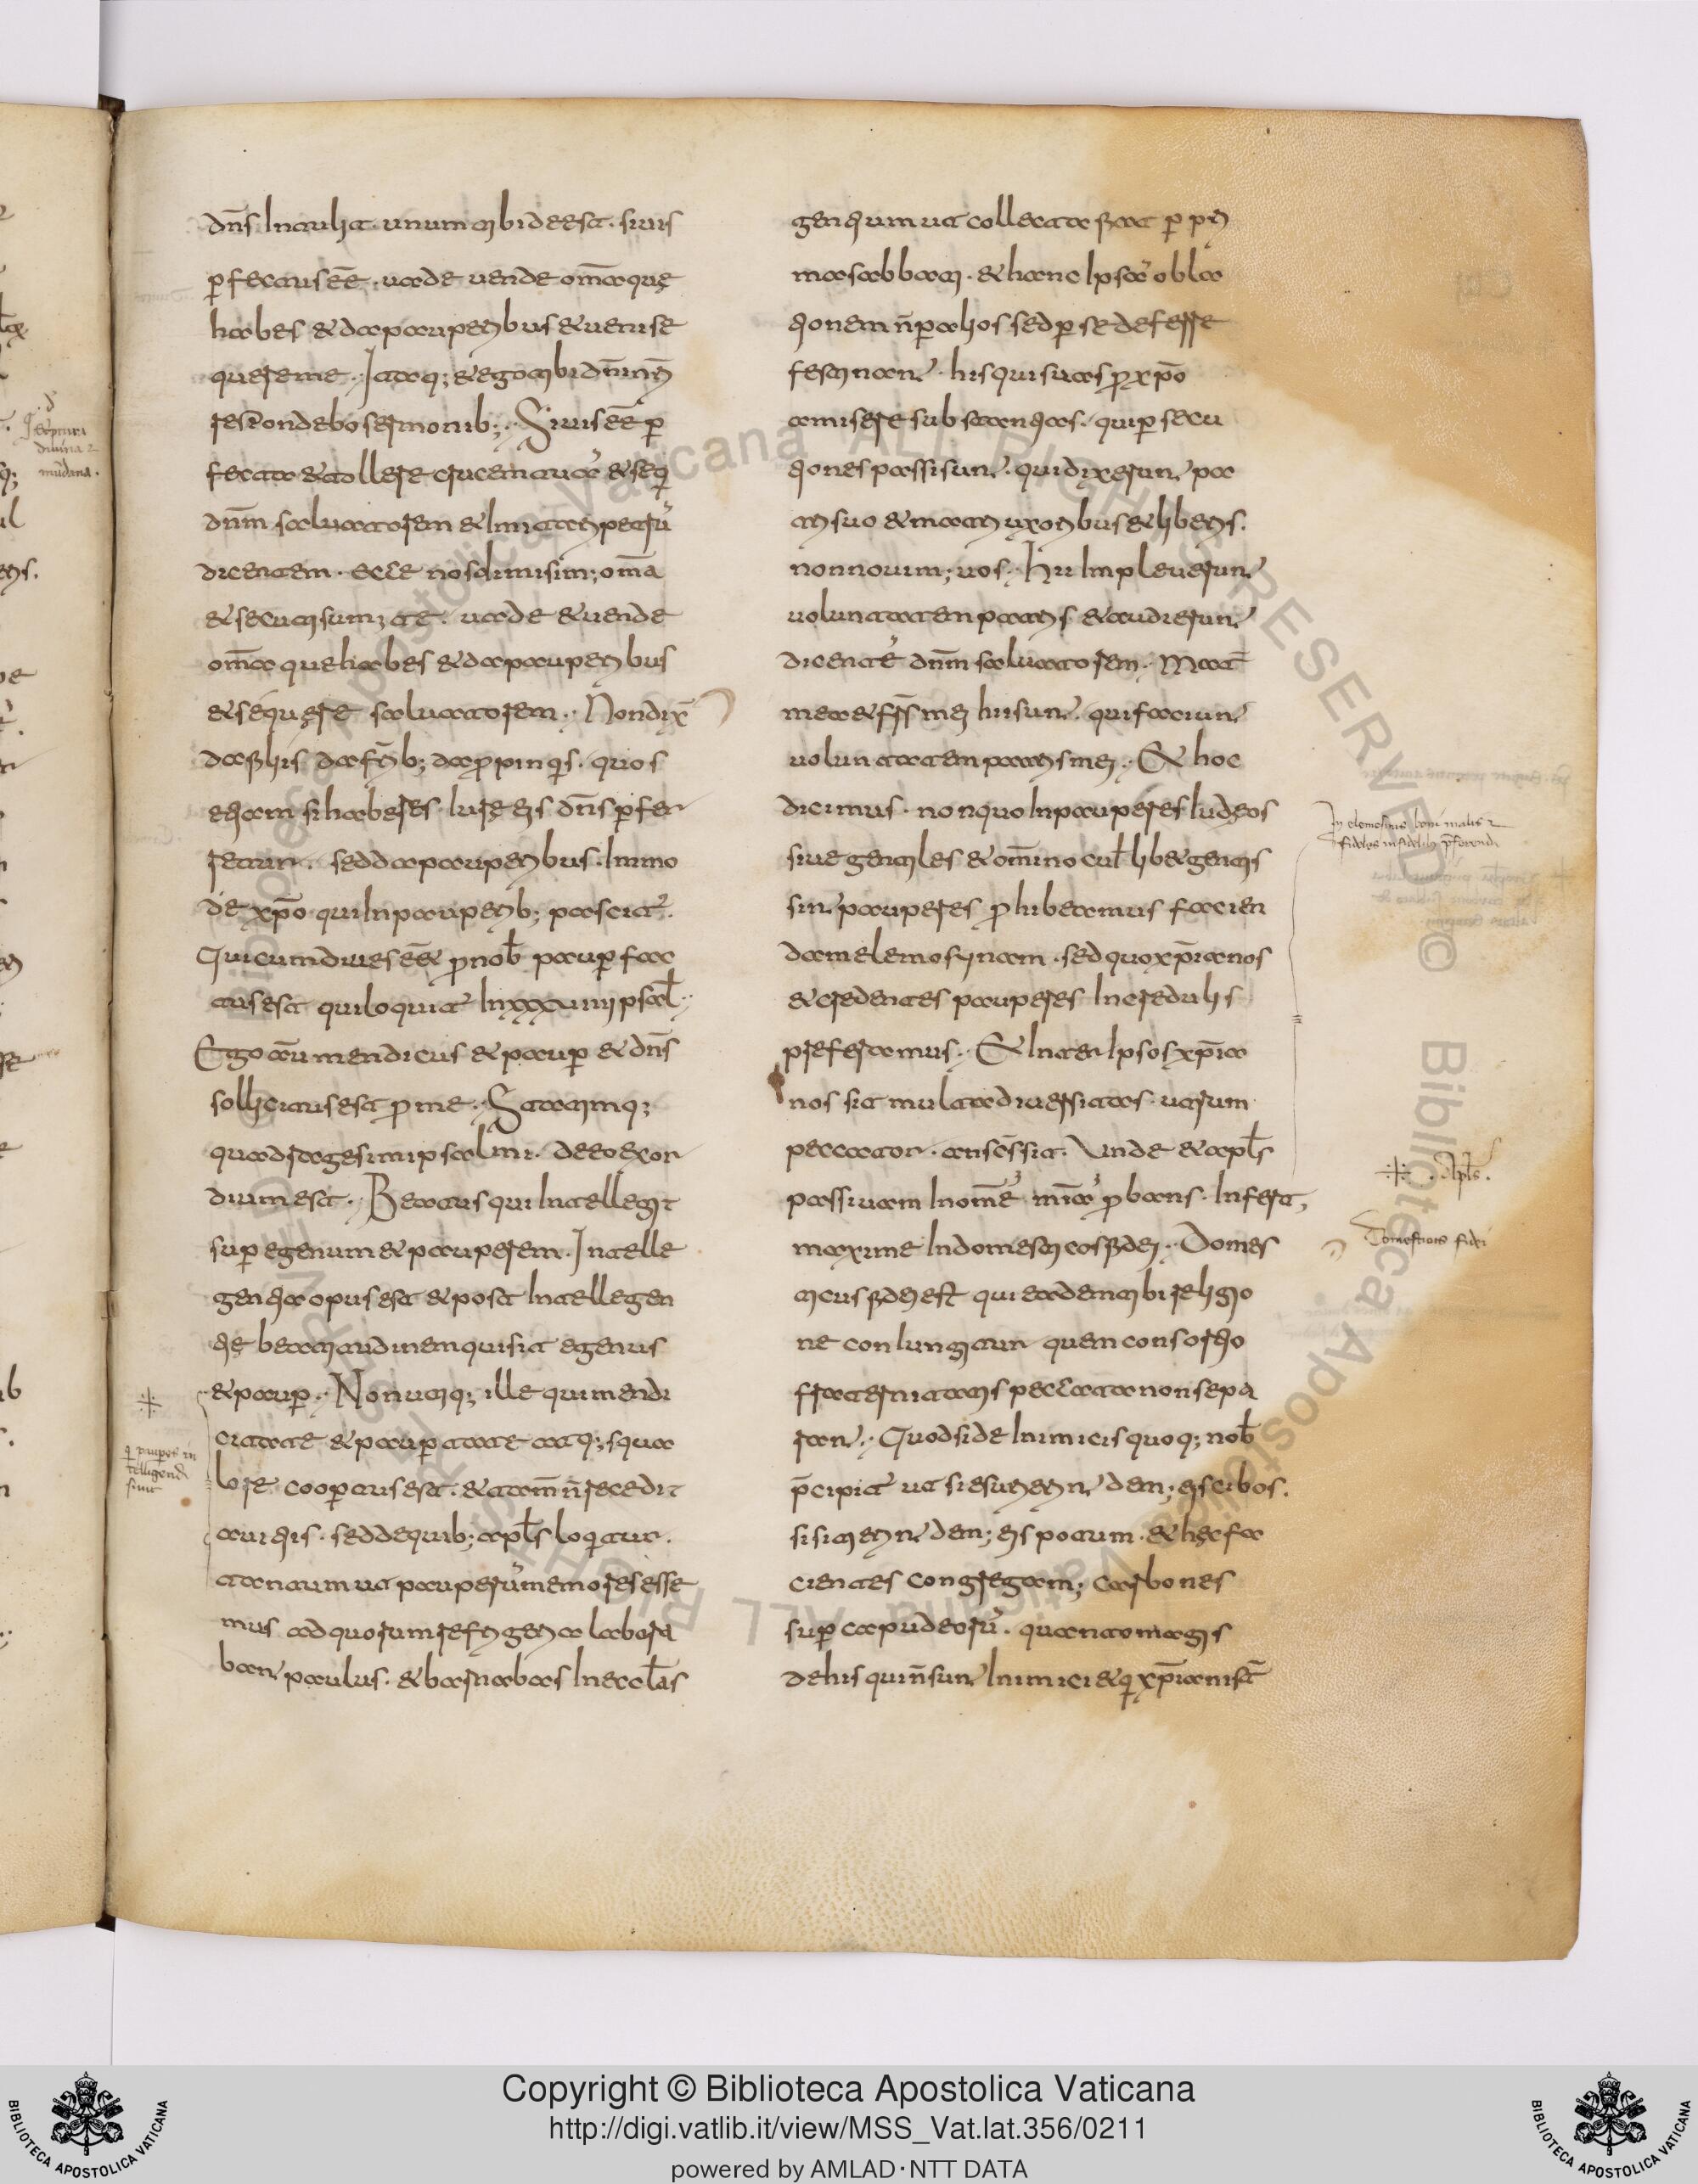 dn̄s Intulit · unum tibi deest · siuis
ꝑfectus eē̄ · uade uende om̄a quę
habes & da pauperibus & ueni se
quere me · Itaq; & ego tibi dn̄inis
respondebo sermonib; · Siuis eē̄ ꝑ
fecta & tollere crucem tuā & seq̨
dn̄m saluatorem & Imitari petrū
dicentem · ecce nos dimisim; om̄a
& secuti sum; te · uade & uende
om̄a que habes & da pauperibus
& sequere saluatorem · Non dix̄
da filiis da fr̄ib; da ꝓpinq̨s · quos
etiam si haberes · Iure eis dn̄s ꝑfer
retur · sed da pauperibus · Immo
da xp̄o qui In pauperib; pascit̉ ·
Qui cum diues eē& ꝓ nob̄ pauꝑ fac
tus est qui loquit̉ In xxxuiiii psal̄ ·
Ego autē̄ mendicus & pauꝑ & dn̄s
sollicitus est ꝓ me · Statimq;
quadragesimi psalmi · de eo exor
dium est · Beatus qui Intellegit
suꝑ egenum & pauperem · Intelle
gentia opus est & post Intellegen
tię beatitudinem quis sit egenus
& pauꝑ · Non utiq; ille qui mendi
citate & pauꝑtate atq; squa
lore cooꝑtus est · & tam̄ n̄ recedit
a uitiis · sed de quib; apl̄s loq̨tur ·
tantum ut pauperū memores esse
mus ad quorum refrigeria labora
bant paulus · & barnabas In eccl̄as
gentium ut collecta fiat ꝑ pri
ma sabbati · & hanc Ipsā obla
tionem n̄ ꝑ alios sed ꝑ se deferre
festinant · his qui suas ꝓ xp̄o
amisere substantias · qui ꝑsecu
tiones passi sunt · qui dixerunt pa
tri suo & matri uxoribus & liberis ·
non nouim; uos · Hii Impleuerunt
uoluntatem patris & audierunt
dicentē dn̄m saluatorem · Mat̄
mea & frs̄ mei hii sunt · qui faciunt
uoluntatem patris mei · Et hoc
dicimus · non quo In pauperes Iudęos
siue gentiles & om̄ino cuil̄ib& gentis
sint pauperes ꝓhibeamus facien
dam elemosynam · sed quo xp̄ianos
& credentes pauperes Incredulis
preferamus · Et Inter Ipsos xp̄ia
nos sit multa diuersitas · utrum
peccator · an scs̄ sit · Unde & apl̄s
passiuam In om̄ē mīam ꝓbans · Infert,
maxime In domesticos fidei · Domes
ticus fidei est qui eadem tibi religio
ne coniungitur quem consortio
fraternitatis peccata non sepa
rant · Quod si de Inimicis quoq; nob̄
p̄cipit̉ ut si esurierint dem; eis cibos ·
si sitierint dem; eis potum · & hęc fa
cientes congregam; carbones
suꝑ caput eorū · quanto magis
de his qui n̄ sunt Inimici & q̨ xp̄iani sc̄i
In elemosinis boni malis &
fideles infidelib; p̄ferendi
· Apl̄s ·
Domesticos fidei
q̨ pauperes in
telligendi
sint
mūdana ·
Copyright © Biblioteca Apostolica Vaticana
http://digi.vatlib.it/view/MSS_Vat.lat.356/0211
powered by AMLAD·NTT DATA
BIBLIOTECA APOSTOLICA VATICANA
BIBLIOTECA APOSTOLICA VATICANA